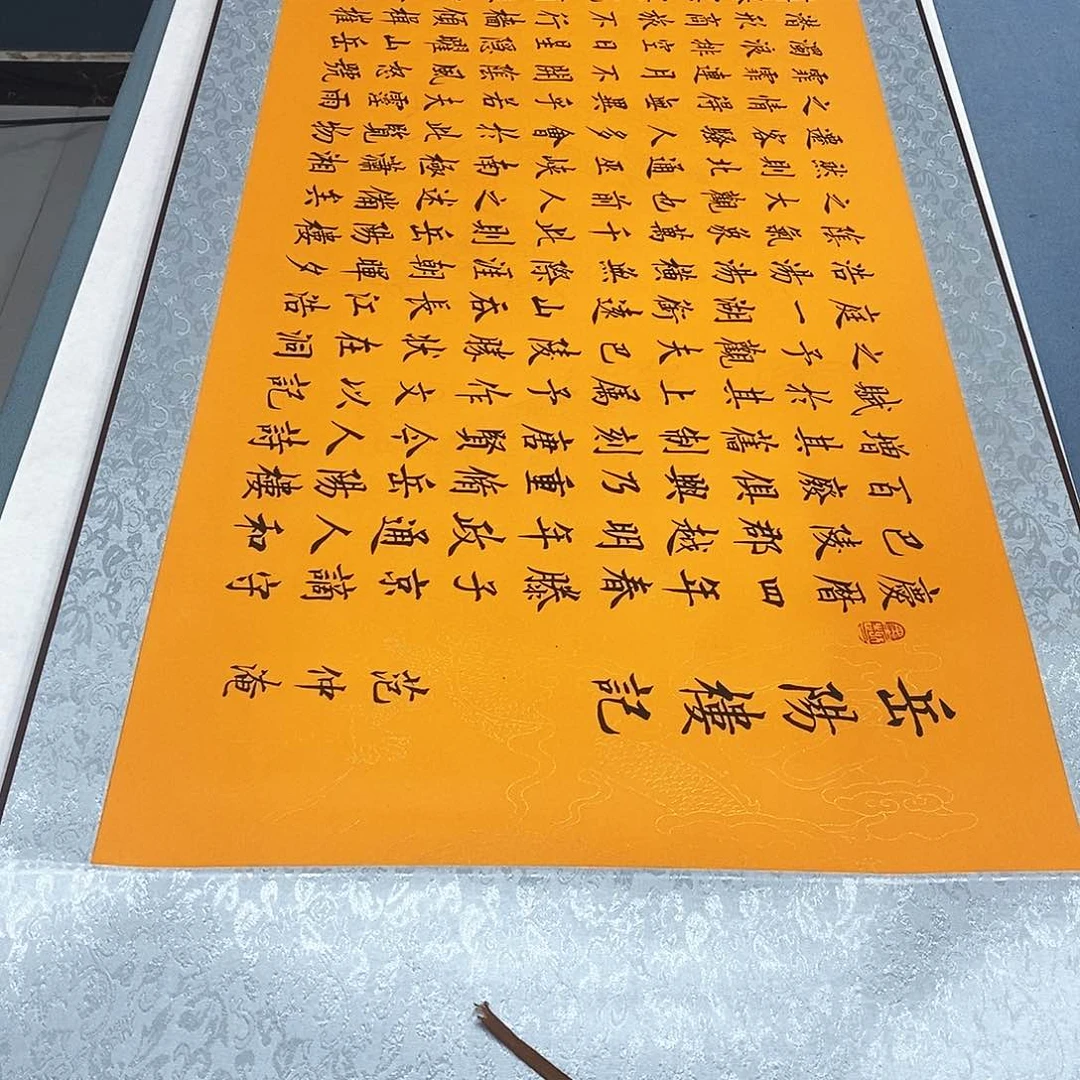 岳陽樓記 范仲淹
慶曆四年春滕子京謫守
巴陵郡越明年政通人和
百廢俱興乃重脩岳陽樓
增其舊制刻唐賢今人詩
賦於其上屬予作文以記
之予觀夫巴陵勝狀在洞
庭一湖銜遠山吞長江浩
浩湯湯橫無際涯朝暉夕
陰氣象萬千此則岳陽樓
之大觀也前人之述備矣
然則北通巫峽南極瀟湘
遷客騷人多會於此覽物
之情得無異乎若夫霪雨
霏霏連月不開陰風怒號
濁浪排空日星隱曜山岳
潛形商旅不行檣傾楫摧